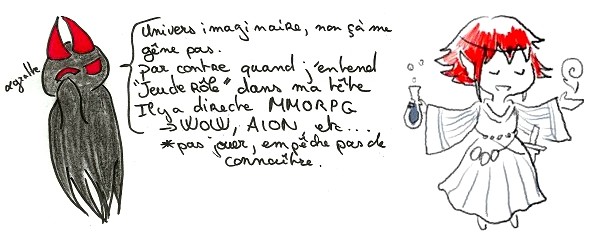 agratte
Univers imaginaire, non çà me
gêne pas.
par contre quand j'entend
"Jeu de Rôle" dans ma tête
Il y a directe MMORPG
→ WOW, AION etc...
*pas jouer, empêche pas de
connaître.